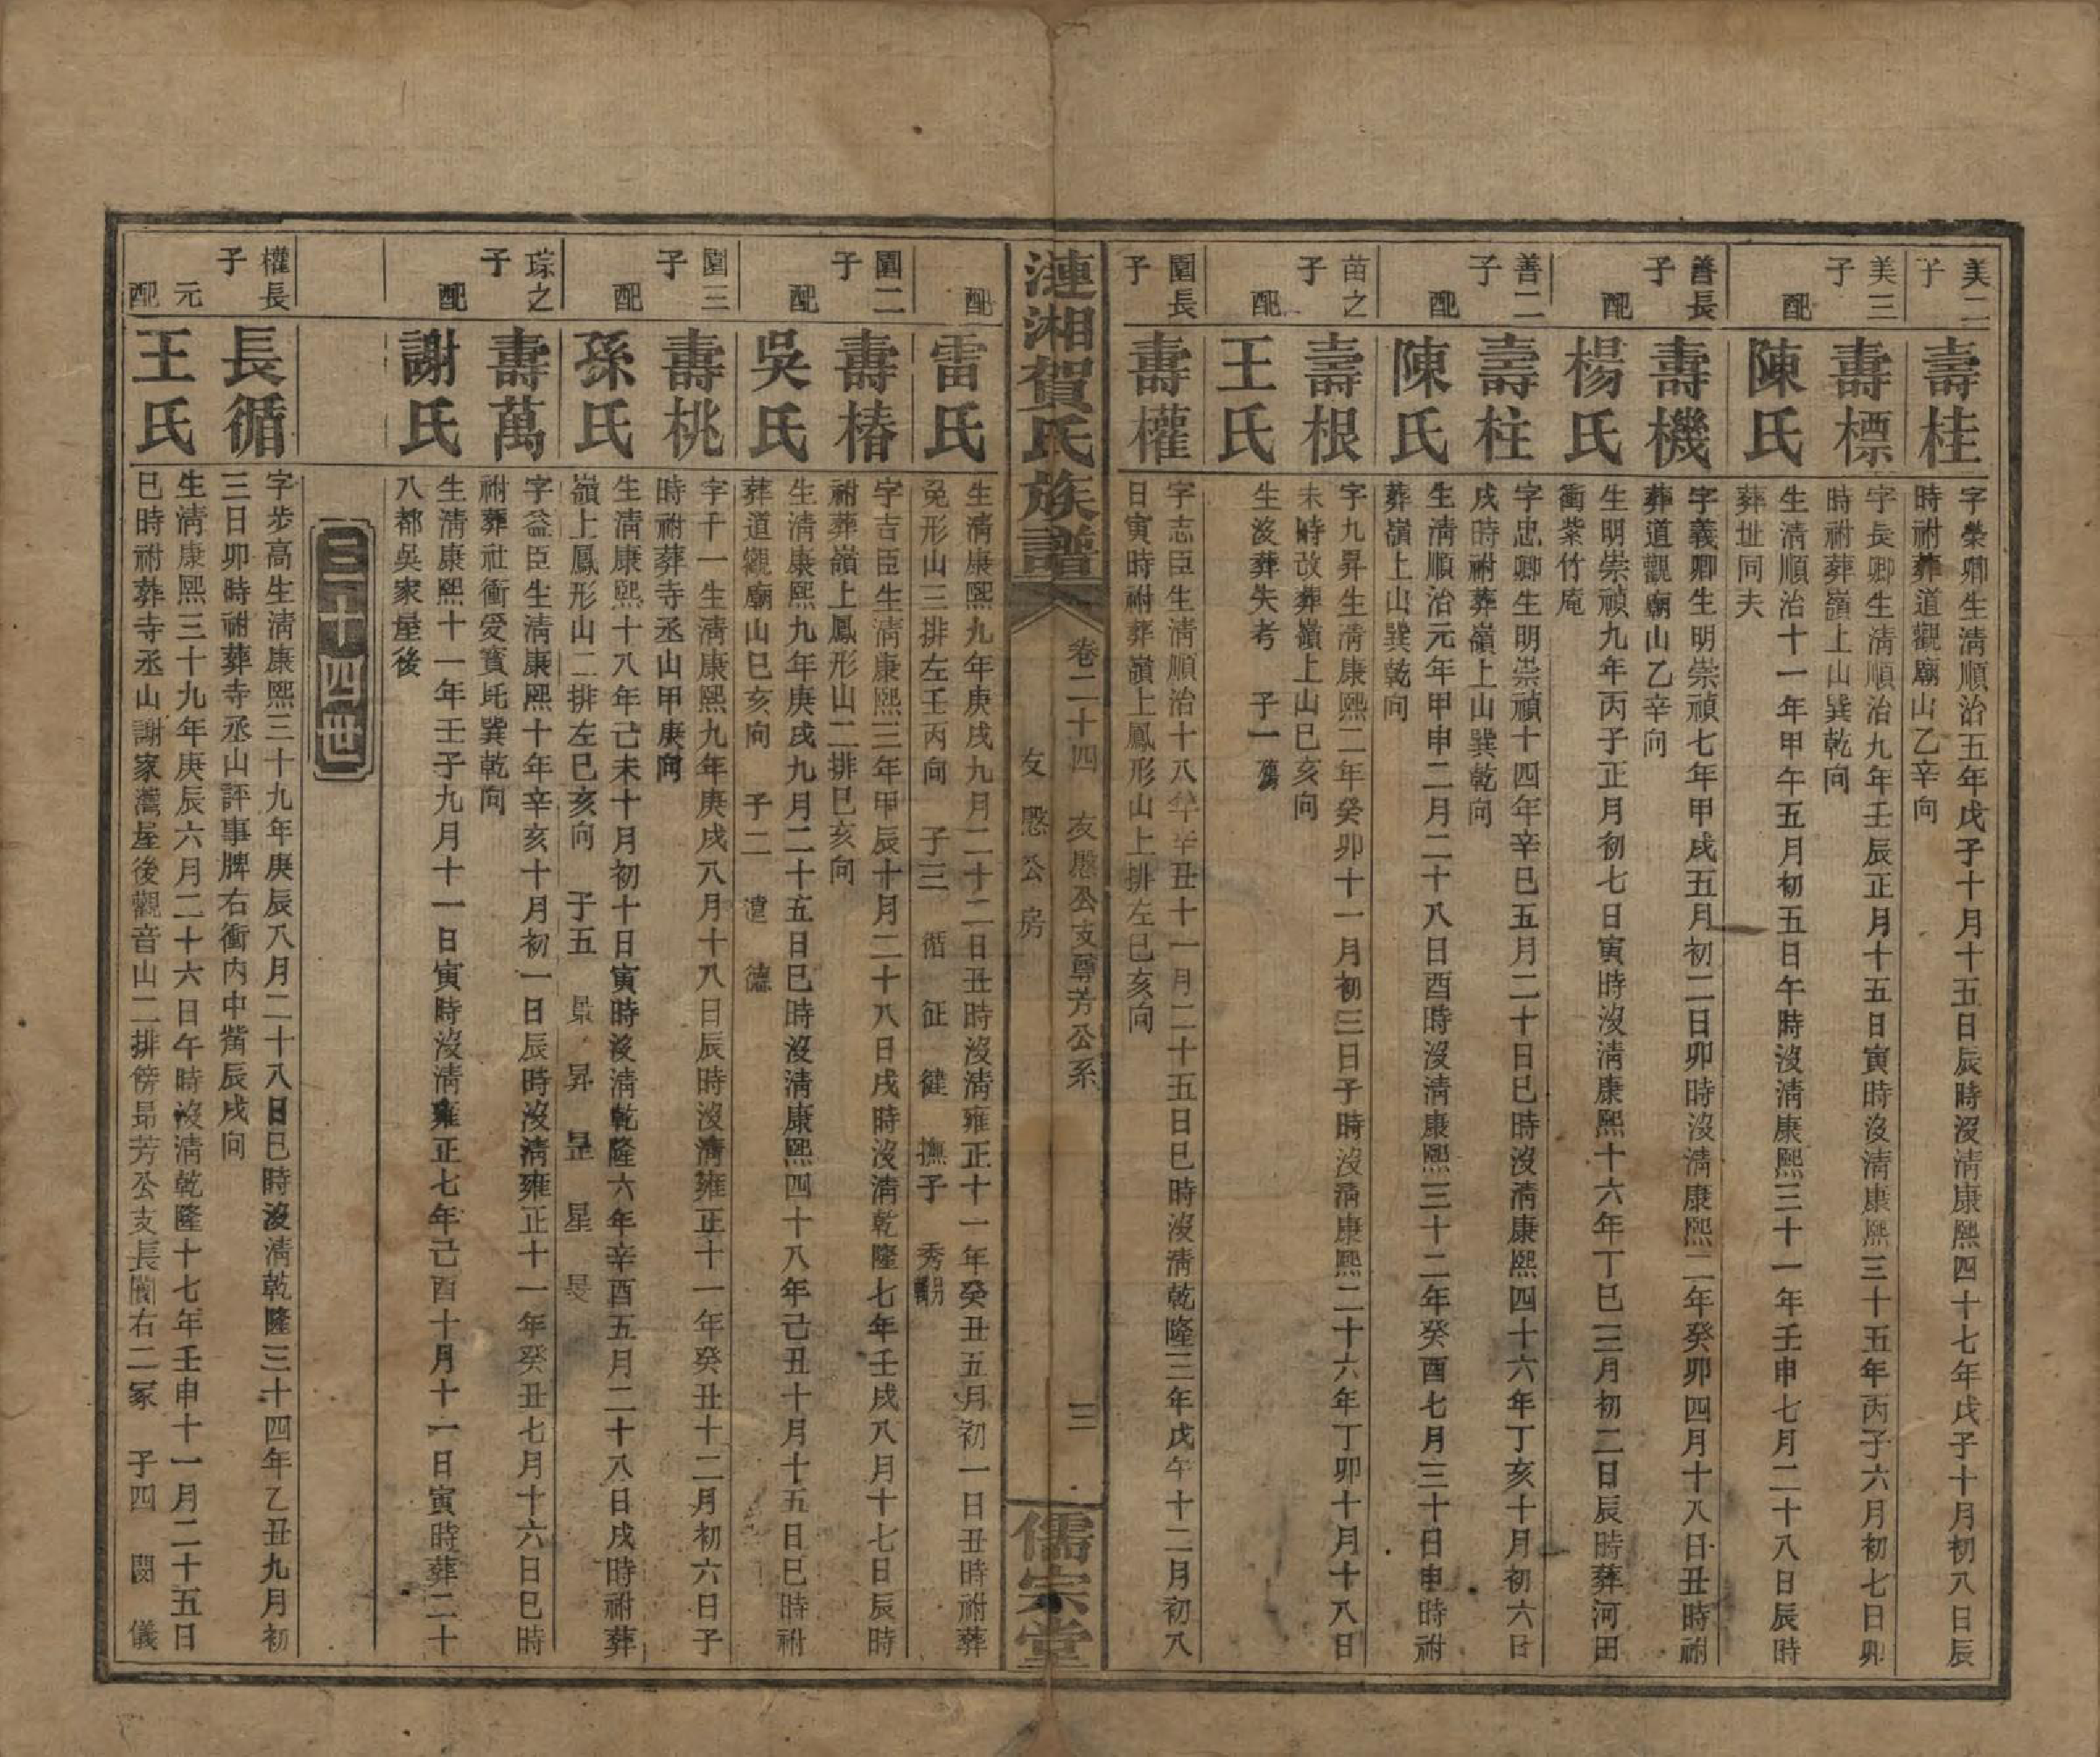 美二子
壽桂
字榮卿生淸順治五年戊子十月十五日辰時沒淸康熙四十七年戊子十月初八日辰
時祔葬道觀廟山乙辛向
美三子
壽標
字長卿生淸順治九年壬辰正月十五日寅時沒淸康熙三十五年丙子六月初七日卯
時祔葬嶺上山巽乾向
配
陳氏
生淸順治十一年甲午五月初五日午時沒淸康熙三十一年壬申七月二十八日辰時
葬坒同夫
善長子
壽機
字義卿生明崇禎七年甲戌五月初二日卯時沒淸康熙二年癸卯四月十八日丑時祔
葬道觀廟山乙辛向
配
楊氏
生明崇禎九年丙子正月初七日寅時沒淸康熙十六年丁巳三月初二日辰時葬河田
衝紫竹庵
善二子
壽柱
字忠卿生明崇禎十四年辛巳五月二十日巳時沒淸康熙四十六年丁亥十月初六日
戌時祔葬嶺上山巽乾向
配
陳氏
生淸順治元年甲申二月二十八日酉時沒淸康熙三十二年癸酉七月三十日申時祔
葬嶺上山巽乾向
苗之子
壽根
字九昇生淸康熙二年癸卯十一月初三日子時沒淸康熙二十六年丁卯十月十八日
未時改葬嶺上山巳亥向
配
王氏
生沒葬失考 子一
園長子
壽權
字志臣生淸順治十八年辛丑十一月二十五日巳時沒淸乾隆三年戊午十二月初八
日寅時祔葬嶺上鳳形山上排左巳亥向
漣湘賀氏族譜
卷二十四 友愍公支尊芳公系
友愍公房
三
儒宗堂
配
雷氏
生淸康熙九年庚戌九月二十二日丑時沒淸雍正十一年癸丑五月初一日丑時祔葬
兔形山三排左壬丙向 子三 循 征 徤 撫子 秀
園二子
壽椿
字吉臣生淸康熙三年甲辰十月二十八日戌時沒淸乾隆七年壬戌八月十七日辰時
祔葬嶺上鳳形山二排巳亥向
配
吳氏
生淸康熙九年庚戌九月二十五日巳時沒淸康熙四十八年己丑十月十五日巳時祔
葬道觀廟山巳亥向 子二 德
園三子
壽桃
字千一生淸康熙九年庚戌八月十八日辰時沒淸雍正十一年癸丑十二月初六日子
時祔葬寺丞山甲庚向
配
孫氏
生淸康熙十八年己未十月初十日寅時沒淸乾隆六年辛酉五月二十八日戌時祔葬
嶺上鳳形山二排左巳亥向 子五 景 昇 昰 星 旻
琮之子
壽萬
字益臣生淸康熙十年辛亥十月初一日辰時沒淸雍正十一年癸丑七月十六日巳時
祔葬社衝爱賓坉巽乾向
配
謝氏
生淸康熙十一年壬子九月十一日寅時沒淸雍正七年己酉十月十一日寅時葬二十
八都吳家屋後
三十四世
權長子
長循
字步高生淸康熙三十九年庚辰八月二十八日巳時沒淸乾隆三十四年乙丑九月初
三日卯時祔葬寺丞山評事脾右衝內中觜辰戌向
元配
王氏
生淸康熙三十九年庚辰六月二十六日午時沒淸乾隆十七年壬申十一月二十五日
巳時祔葬寺丞山謝家灣屋後觀音山二排傍昻芳公支長閫右二冢 子四 閔 儀